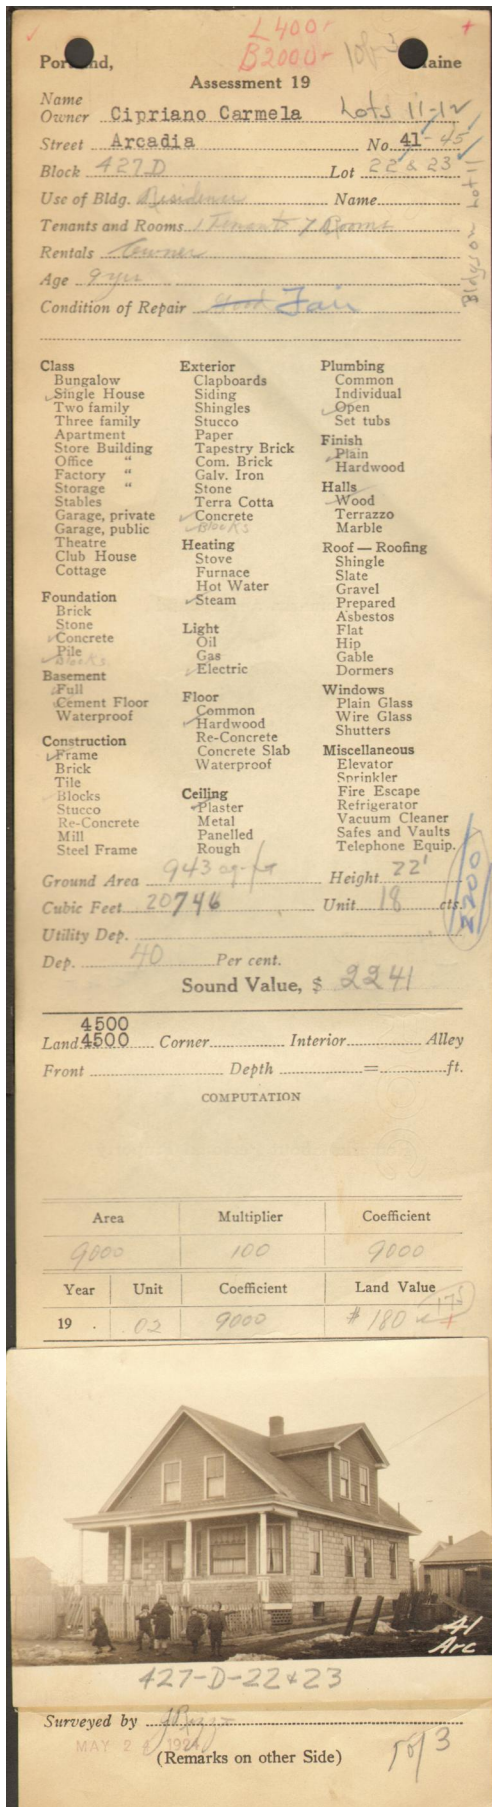 L 400-
B 2000-
Portland, Maine
Assessment 19
Name
Owner Cipriano Carmela Lots 11-12
Street Arcadia No. 41-45
Block 427D Lot 22 & 23
Bldgs on Lot 11
Use of Bldg. Residence Name
Tenants and Rooms 1 Tenant 7 Rooms
Rentals Owner
Age 9 yrs
Condition of Repair Good Fair
Class
Bungalow
Single House
Two family
Three family
Apartment
Store Building
Office "
Factory "
Storage "
Stables
Garage, private
Garage, public
Theatre
Club House
Cottage
Foundation
Brick
Stone
Concrete
Pile
Blocks
Basement
Full
Cement Floor
Waterproof
Construction
Frame
Brick
Tile
Blocks
Stucco
Re-Concrete
Mill
Steel Frame
Exterior
Clapboards
Siding
Shingles
Stucco
Paper
Tapestry Brick
Com. Brick
Galv. Iron
Stone
Terra Cotta
Concrete
Blocks
Heating
Stove
Furnace
Hot Water
Steam
Light
Oil
Gas
Electric
Floor
Common
Hardwood
Re-Concrete
Concrete Slab
Waterproof
Ceiling
Plaster
Metal
Panelled
Rough
Plumbing
Common
Individual
Open
Set tubs
Finish
Plain
Hardwood
Halls
Wood
Terrazzo
Marble
Roof — Roofing
Shingle
Slate
Gravel
Prepared
Asbestos
Flat
Hip
Gable
Dormers
Windows
Plain Glass
Wire Glass
Shutters
Miscellaneous
Elevator
Sprinkler
Fire Escape
Refrigerator
Vacuum Cleaner
Safes and Vaults
Telephone Equip.
Ground Area 943 sq-ft Height 22'
Cubic Feet 20746 Unit 18 cts.
2200
Utility Dep.
Dep. 40 Per cent.
Sound Value, $ 2241
4500
Land 4500 Corner Interior Alley
Front Depth = ft.
COMPUTATION
Area Multiplier Coefficient
9000 100 9000
Year Unit Coefficient Land Value
19 . 02 9000 # 180 175
41
Arc
427-D-22 & 23
Surveyed by
MAY 2 192
(Remarks on other Side)
1 of 3